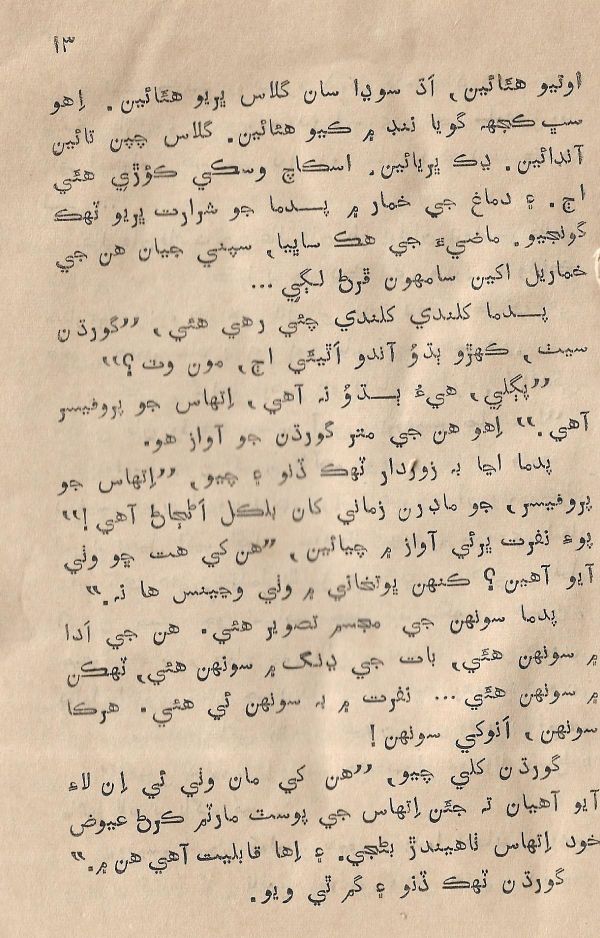 ١٣
اوتيو هئائين، اَڌ سوڊا سان گلاس ڀريو هئائين. اِهو
سڀ ڪجهه گويا ننڊ ۾ ڪيو هئائين. گلاس چپن تائين
آندائين. ڍڪ ڀريائين. اسڪاچ وسڪي ڪؤڙي هئي
اڄ. ۽ دماغ جي خمار ۾ پدما جو شرارت ڀريو ٽهڪ
گونجيو. ماضيءَ جي هڪ ساڀيا، سپني جيان هن جي
خماريل اکين سامهون ڦرڻ لڳي ...
پدما کلندي کلندي چئي رهي هئي، ”گورڌن
سيٺ، ڪهڙو ٻڌوُ آندو اَٿيئي اڄ، مون وٽ؟“
”پڳلي، هيءُ ٻڌوُ نہ آهي، اِتهاس جو پروفيسر
آهي.“ اِهو هن جي متر گورڌن جو آواز هو.
پدما اڃا بہ زوردار ٽهڪ ڏنو ۽ چيو، ”اِتهاس جو
پروفيسر، جو ماڊرن زماني کان بلڪل اَڻڄاڻ آهي!“
پوءِ نفرت ڀرئي آواز ۾ چيائين، ”هن کي هت ڇو وٺي
آيو آهين؟ ڪنهن ڀوتخاني ۾ وٺي وڃينس ها نہ.“
پدما سونهن جي مجسم تصوير هئي. هن جي اَدا
۾ سونهن هئي، بات جي ڍنگ ۾ سونهن هئي، ٽهڪن
۾ سونهن هئي ... نفرت ۾ بہ سونهن ئي هئي. هرڪا
سونهن، اَنوکي سونهن!
گورڌن کلي چيو، ”هن کي مان وٺي ئي اِن لاءِ
آيو آهيان تہ جيئن اِتهاس جي پوسٽ مارٽم ڪرڻ عيوض
خود اِتهاس ٺاهيندڙ بڻجي. ۽ اِها قابليت آهي هن ۾.“
گورڌن ٽهڪ ڏنو ۽ گم ٿي ويو.